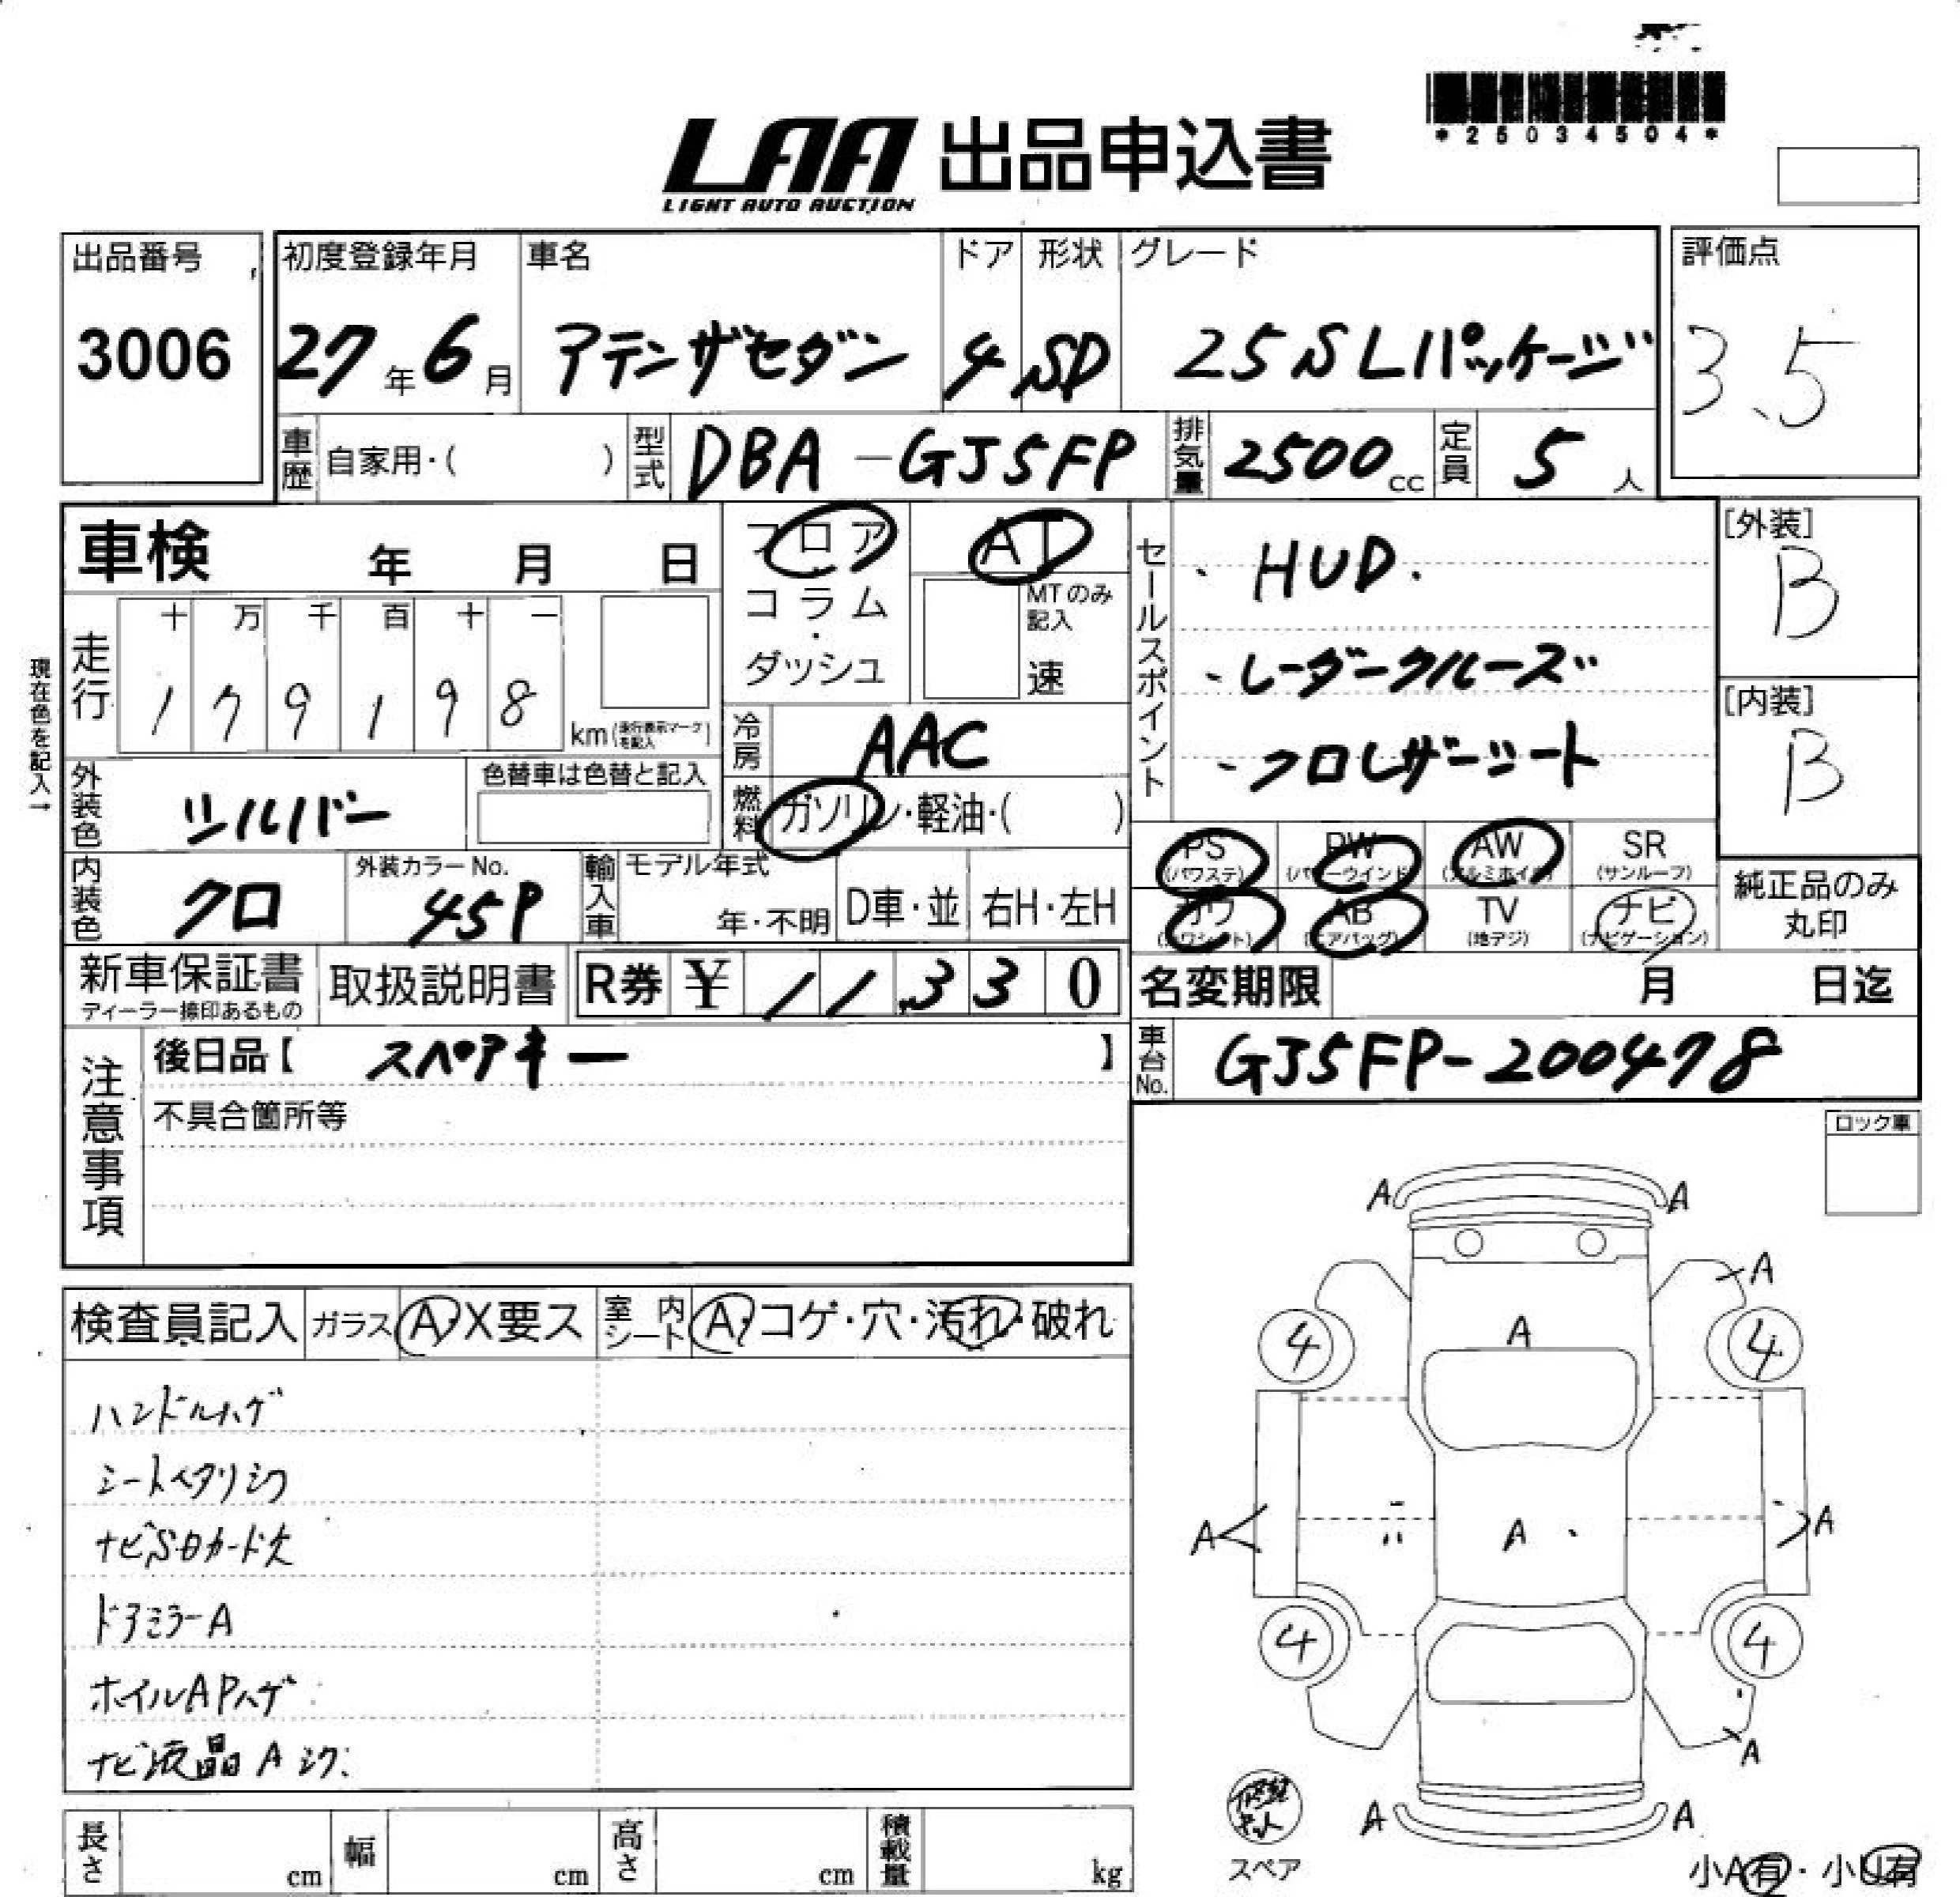 *25034504*
LAA 出品申込書
LIGHT AUTO AUCTION
出品番号 初度登録年月 車名 ドア 形状 グレード 評価点
3006 27年6月 アテンザセダン 4 SD 25S Lパッケージ 3.5
車歴 自家用・( ) 型式 DBA-GJ5FP 排気量 2500cc 定員 5人
車検 年 月 日 フロア AT セールスポイント ・HUD. [外装]
B
コラム・ダッシュ MTのみ記入 速
現在色を記入→
走行 十 万 千 百 十 一
179198 km(走行表示マークを記入)
・レーダークルーズ [内装]
B
冷房 AAC ・クロレザーシート
外装色 シルバー 色替車は色替と記入 燃料 ガソリン・軽油・( )
PS AW SR
(パワステ) (パワーウインド) (アルミホイル) (サンルーフ)
内装色 クロ 外装カラーNo. 45P 輸入車 モデル年式 年・不明 D車・並 右H・左H
AB TV ナビ
(エアバッグ) (地デジ) (ナビゲーション)
純正品のみ丸印
新車保証書 取扱説明書 R券 ¥ 11,330 名変期限 月 日迄
ディーラー捺印あるもの
注意事項 後日品【 スペアキー 】 車台No. GJ5FP-200478
不具合箇所等
ロック車
検査員記入 ガラス A・X要ス 室内シート A・コゲ・穴・汚れ・破れ
ハンドルハゲ
シートヘタリシワ
ナビSDカード欠
ドアミラーA
ホイルAPハゲ
ナビ液晶A
A A
A
4 A 4
A A A
4 4
A
A A
修理キット
スペア
小A有・小U有
長さ cm 幅 cm 高さ cm 積載量 kg